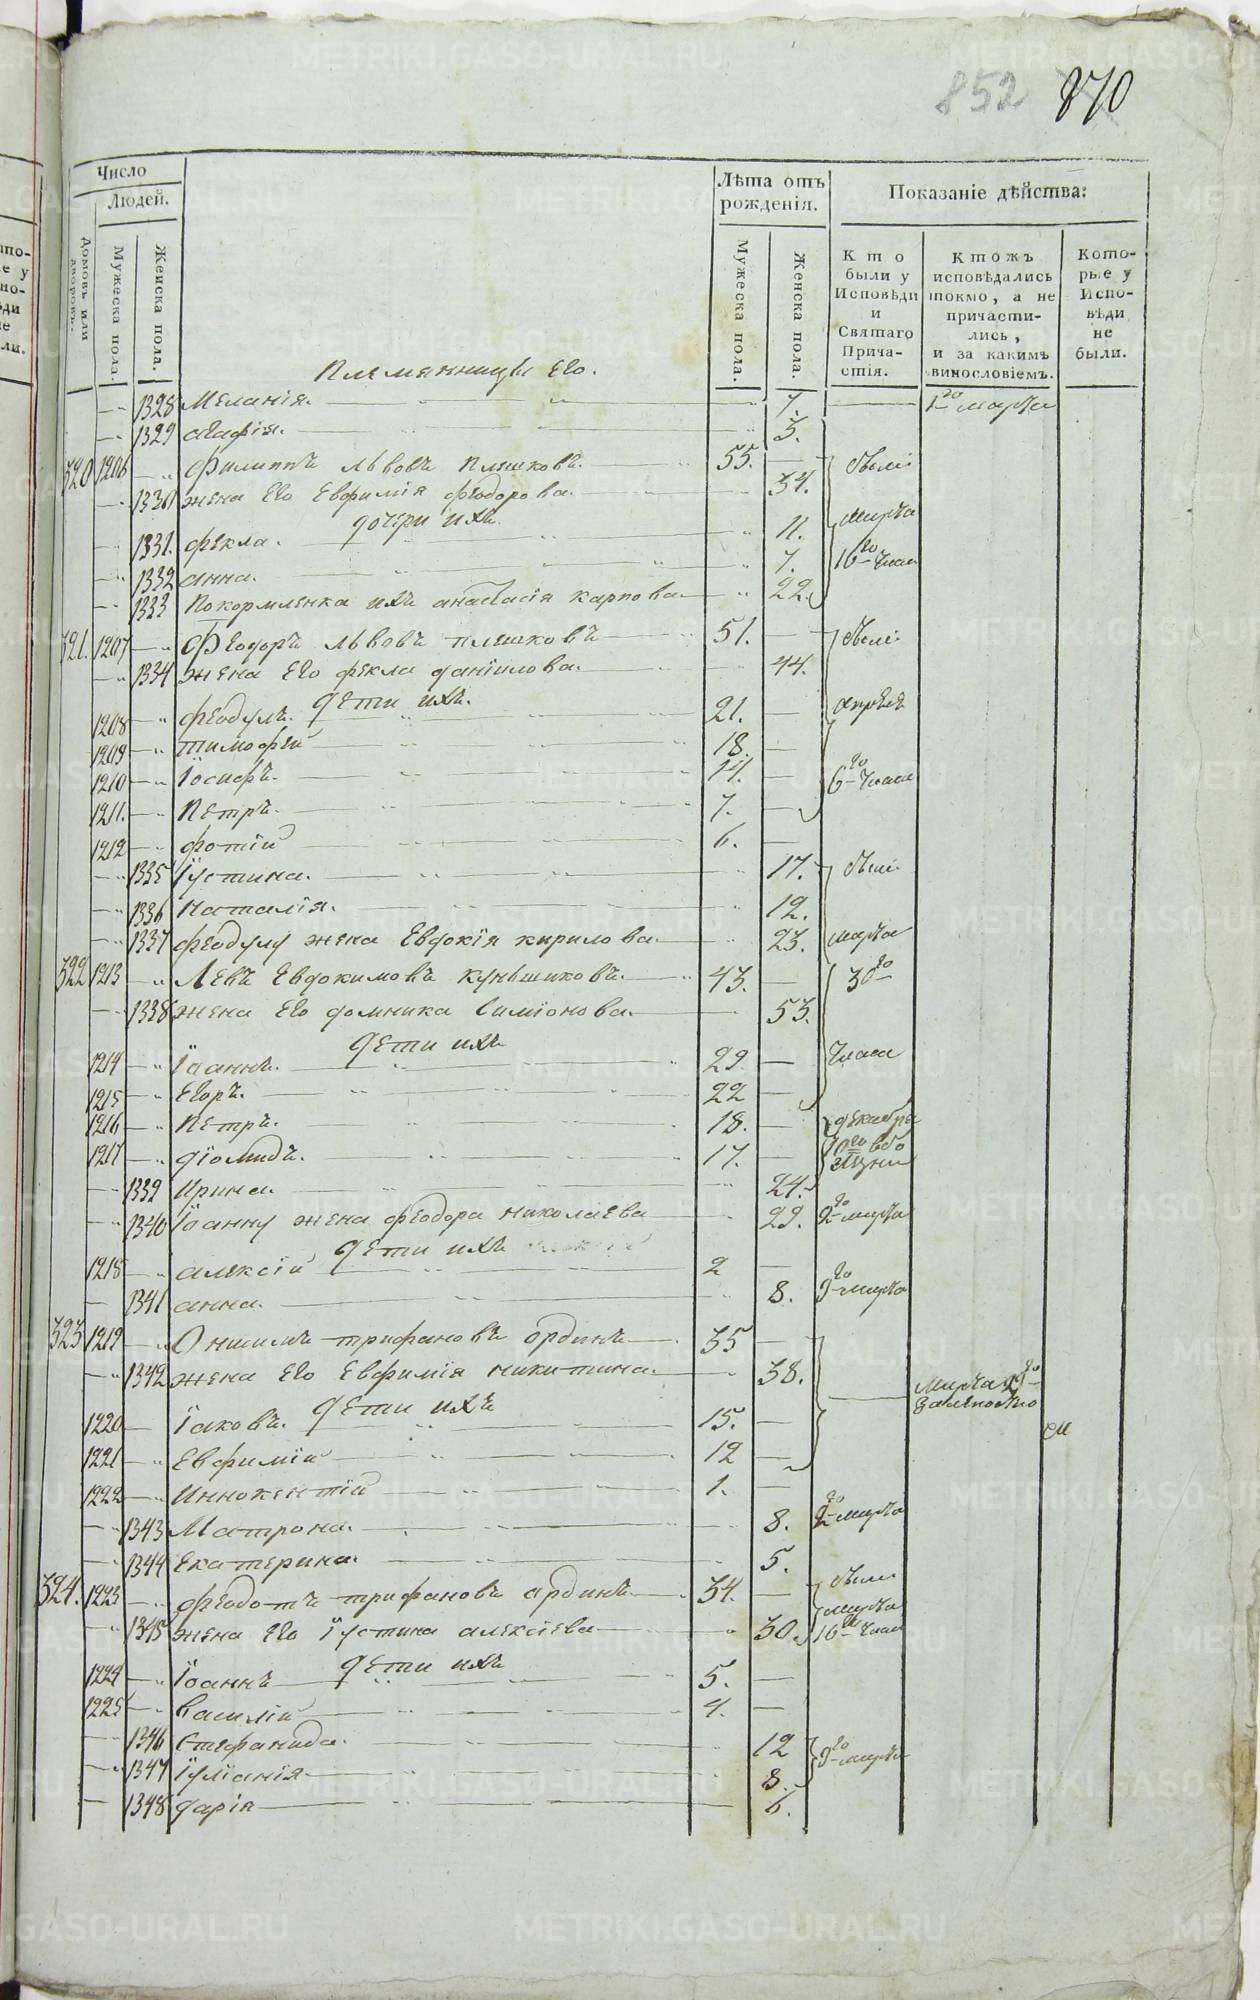 852 870
Число
Людей.
Домовъ или дворовъ.
Мужеска пола.
Женска пола.
Лѣта отъ рожденія.
Мужеска пола.
Женска пола.
Показаніе дѣйства:
Кто были у Исповѣди и Святаго Причастія.
Ктожъ исповѣдались токмо, а не причастились, и за какимъ винословіемъ.
Которые у Исповѣди не были.
Племянницы его.
1328 Меланія. 7. 1го марта
1329 агафія. 3.
320 1206 Филиппъ львовъ плешковъ. 55. были
1330 жена его Евфимія феодорова. 54.
дочери ихъ. марта
1331. фекла. 11.
1332 анна. 7. 16го числа
1333 Покормленка ихъ анастасія карпова 22.
321. 1207 Феодоръ львовъ плешковъ 51. были
1334 жена его фекла даніилова. 44.
дети ихъ.
1208 феодулъ. 21. апреля
1209 тимофей 18.
1210 Іосифъ. 14. 6го числа
1211. Петръ. 7.
1212 фотій 6.
1335 Іустина. 17. были
1336 Наталія. 12.
1337 феодулу жена Евдокія кирилова 23. марта
322 1213 Левъ Евдокимовъ куньщиковъ 43. 30го
1338 жена его домника симіонова. 53.
дети ихъ
1214 Іоаннъ. 29. числа
1215 Егоръ. 22
1216 Петръ. 18. декабря
1217 діомидъ. 17.
1339 Ирина. 24.
1340 Іоанну жена феодора николаева 29. 2го марта
дети ихъ
1218 алексій 2
1341 анна. 8. 9го марта
323 1219 Онисимъ трифановъ ординъ 35
1342 жена его Евфимія никитина. 38. марта 29го
дети ихъ
1220 Іаковъ. 15.
1221 Евфимій 12
1222 Иннокентій 1.
1343 Матрона. 8. 2го марта
1344 Екатерина. 5.
324. 1223 феодотъ трифановъ ардинъ 34. были марта
1345 жена его Іустина алексіева 30. 16го числа
дети ихъ
1224 Іоаннъ 5.
1225 Василій 4.
1346 Стефанида. 12 9го марта
1347 Іуліанія 8.
1348 дарія 6.
METRIKI.GASO-URAL.RU